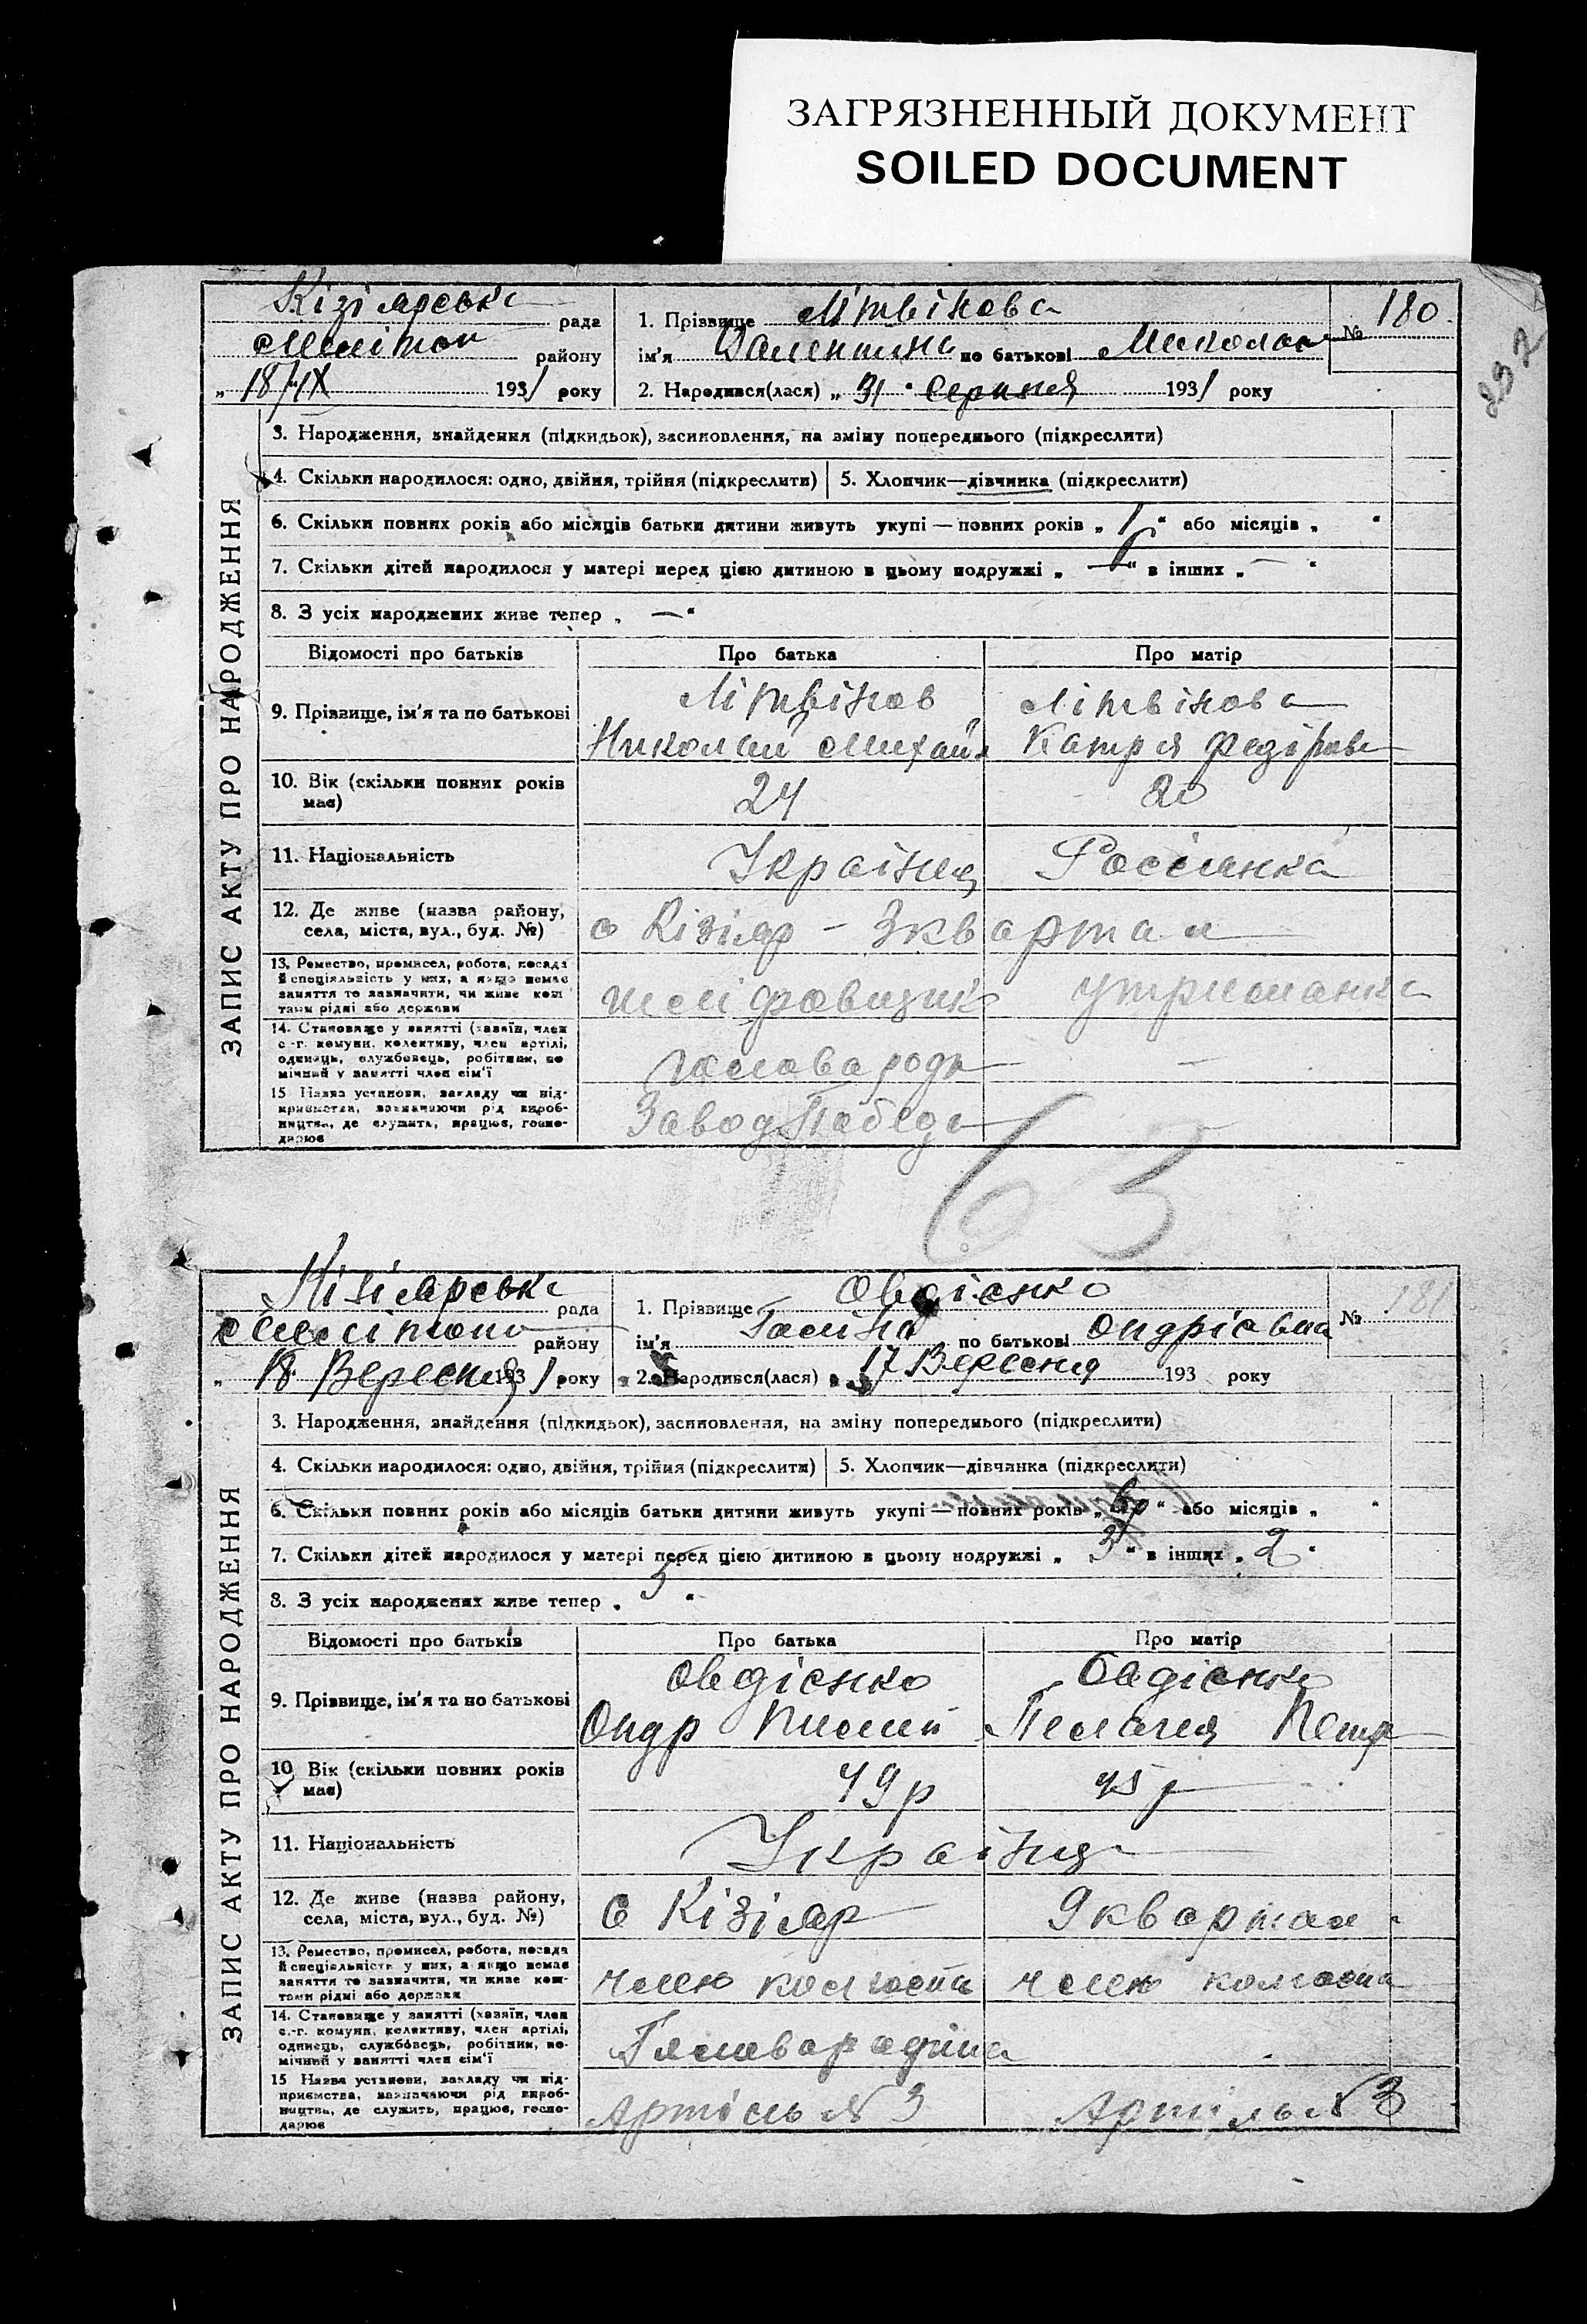 ЗАГРЯЗНЕННЫЙ ДОКУМЕНТ
SOILED DOCUMENT
292
ЗАПИС АКТУ ПРО НАРОДЖЕННЯ
Кізіярська рада
Мелітоп району
„18/IX 1931 року
1. Прізвище Літвінова
ім'я Валентина по батькові Микола
2. Народився(лася) „31" Серпня 1931 року
№ 180
3. Народження, знайдення (підкидьок), засиновлення, на зміну попереднього (підкреслити)
4. Скільки народилося: одно, двійня, трійня (підкреслити) 5. Хлопчик—дівчинка (підкреслити)
6. Скільки повних років або місяців батьки дитини живуть укупі — повних років „ 1 " або місяців „ "
7. Скільки дітей народилося у матері перед цією дитиною в цьому подружжі „ — " в інших „ — "
8. З усіх народжених живе тепер „ — "
Відомості про батьків Про батька Про матір
9. Прізвище, ім'я та по батькові Літвінов Літвінова
Николай Михайл Катря Федірівн
10. Вік (скільки повних років має) 24 20
11. Національність Українц Росіянка
12. Де живе (назва району, села, міста, вул., буд. №) с Кізіяр – 3 квартал
13. Ремество, промисел, робота, посада й спеціяльність у них, а якщо немає заняття то зазначити, чи живе коштами рідні або держави
шліфовщик утриманка
14. Становище у занятті (хазяїн, член с.-г. комуни, колективу, член артілі, одинець, службовець, робітник, помічний у занятті член сім'ї
голова родн —
15 Назва установи, закладу чи підприємства, зазначаючи рід виробництва, де служить, працює, господарює
Завод Победа
63
ЗАПИС АКТУ ПРО НАРОДЖЕННЯ
Кізіярська рада
Мелітоп району
„ 18 Вересня 1931 року
1. Прізвище Овдієнко
ім'я Галина по батькові Ондріевна
2. Народився(лася) 17 Вересня 193 року
№ 181
3. Народження, знайдення (підкидьок), засиновлення, на зміну попереднього (підкреслити)
4. Скільки народилося: одно, двійня, трійня (підкреслити) 5. Хлопчик—дівчинка (підкреслити)
6. Скільки повних років або місяців батьки дитини живуть укупі — повних років „ 6р " або місяців „ "
7. Скільки дітей народилося у матері перед цією дитиною в цьому подружжі „ 3 " в інших „ 2 "
8. З усіх народжених живе тепер „ 5 "
Відомості про батьків Про батька Про матір
9. Прізвище, ім'я та по батькові Овдієнко Овдієнко
Ондр Пелагия Петр
10 Вік (скільки повних років має) 49р 45 р
11. Національність Українц
12. Де живе (назва району, села, міста, вул., буд. №) с Кізіяр 9 квартал
13. Ремество, промисел, робота, посада й спеціяльність у них, а якщо немає заняття то зазначити, чи живе коштами рідні або держави
член колгоспа член колгоспа
14. Становище у занятті (хазяїн, член с.-г. комуни, колективу, член артілі, одинець, службовець, робітник, помічний у занятті член сім'ї
15 Назва установи, закладу чи підприємства, зазначаючи рід виробництва, де служить, працює, господарює
Артіль № 3 Артіль № 3